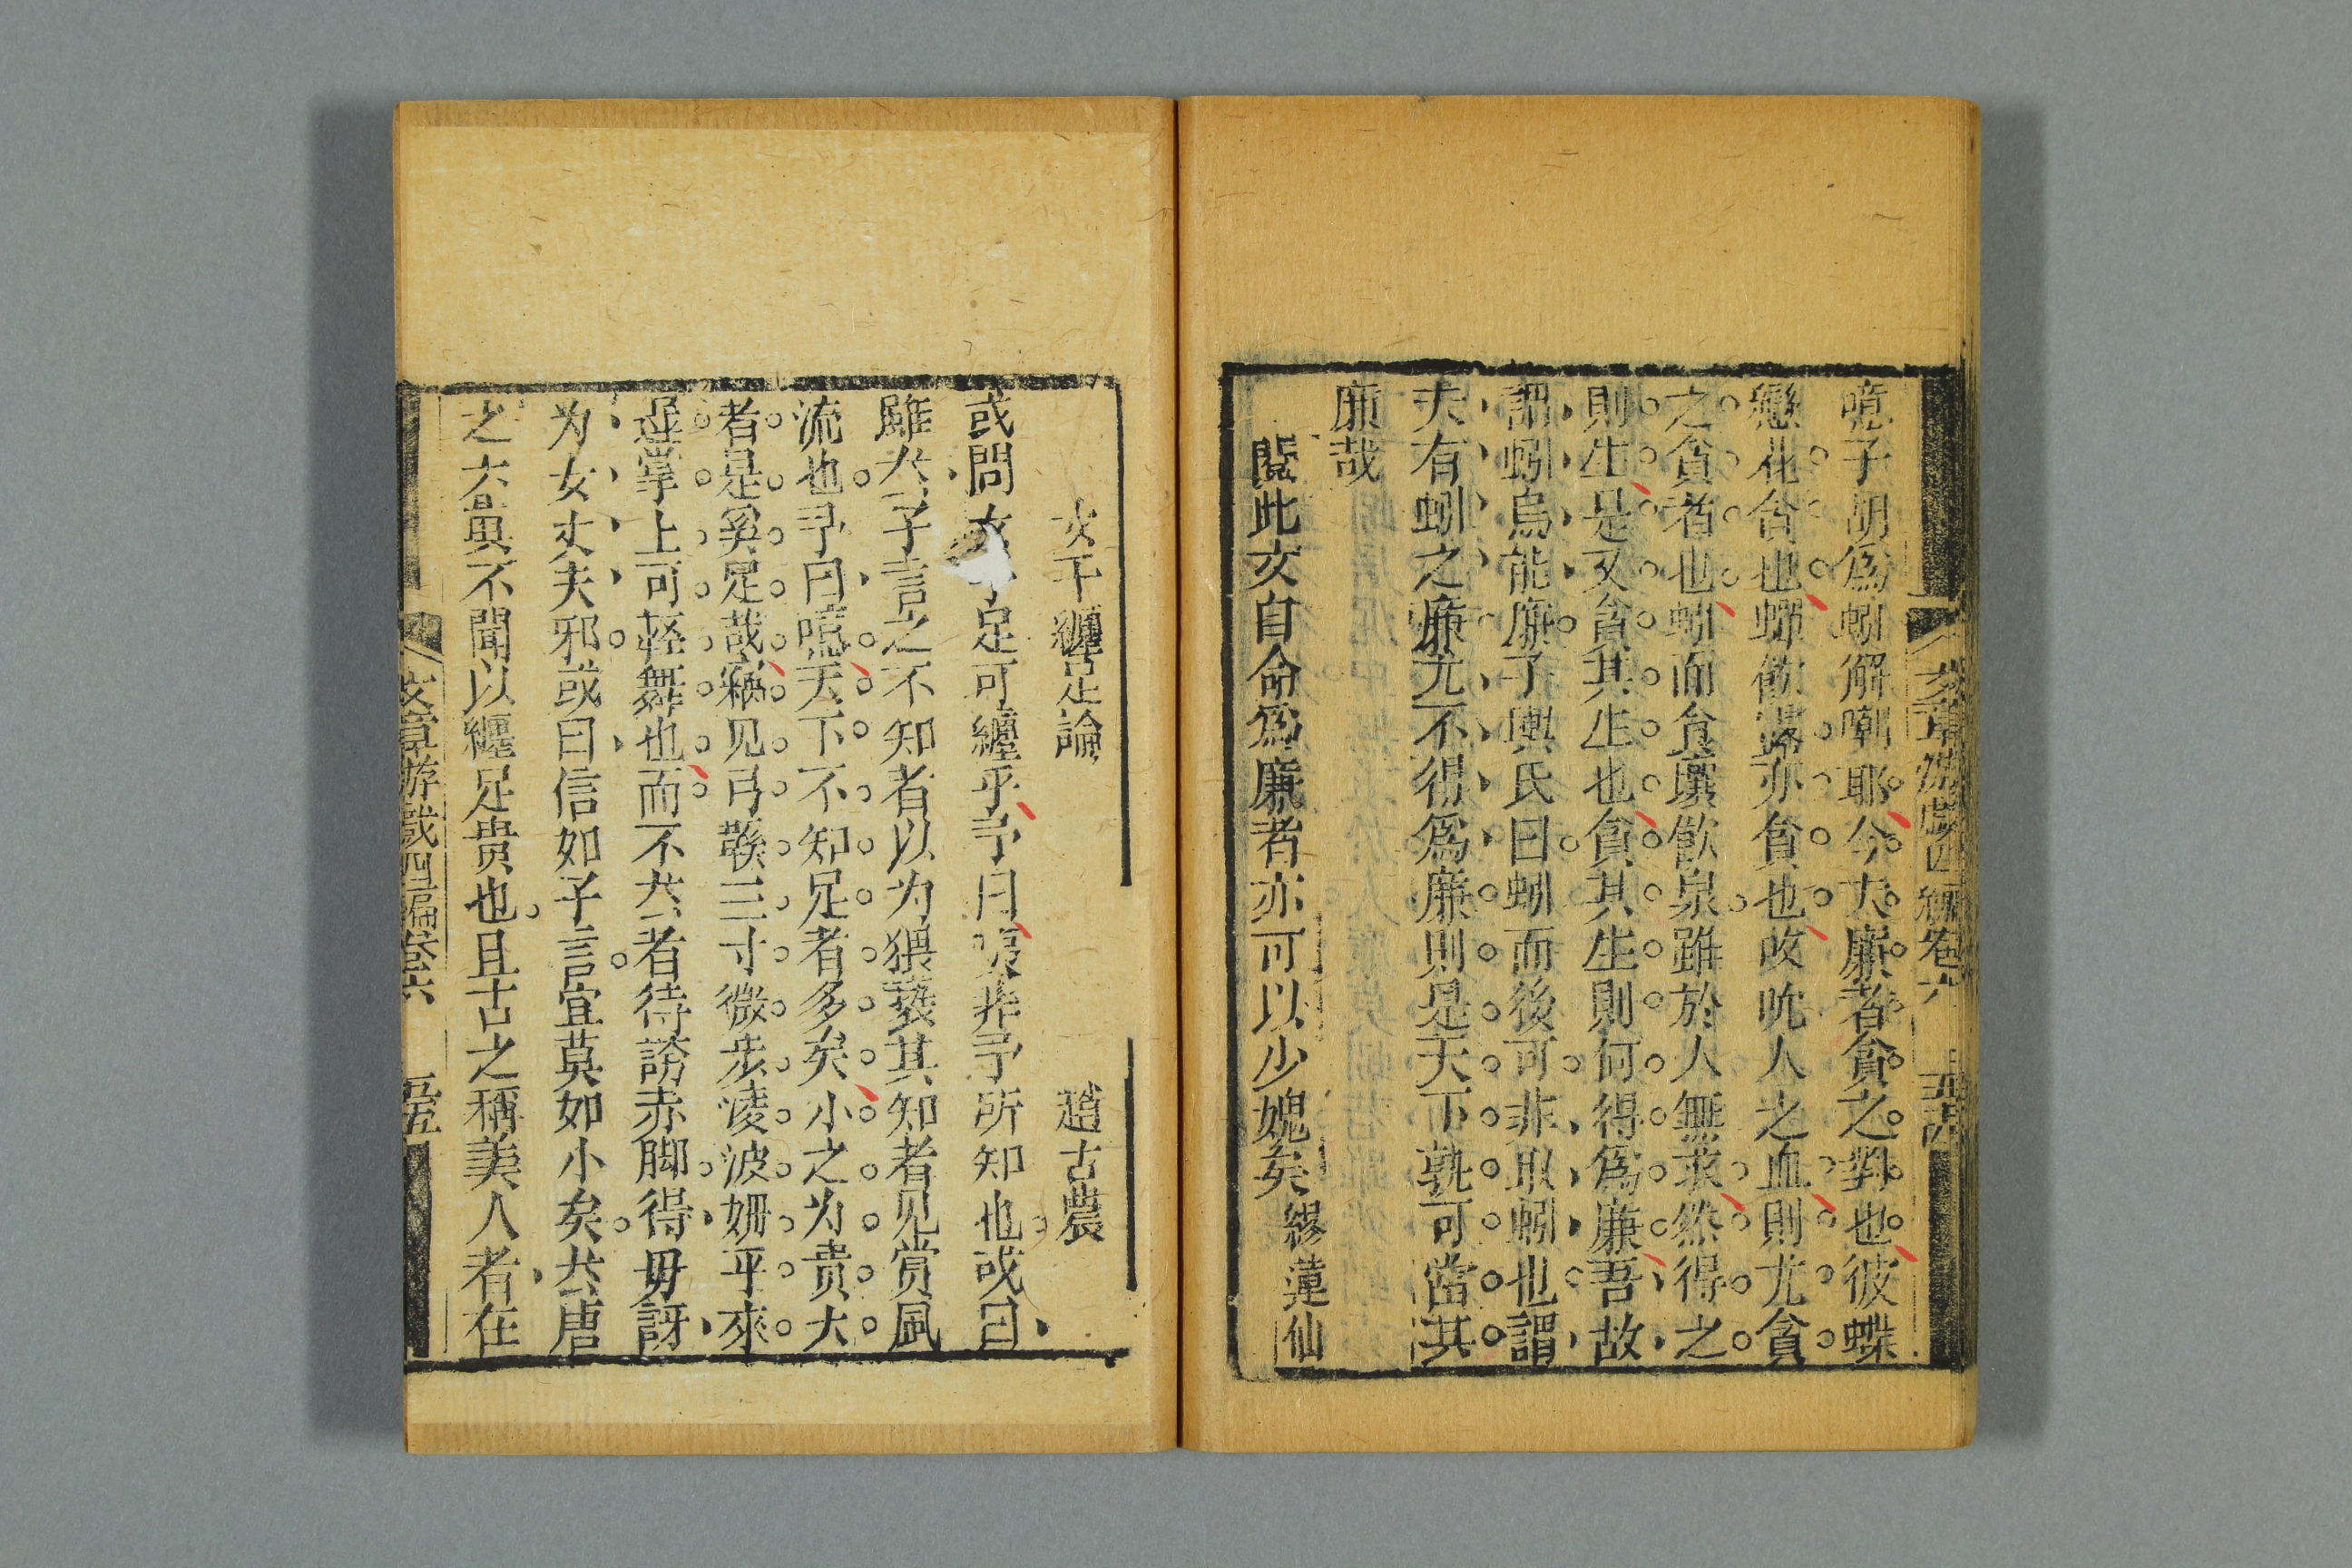 文章游戲四編卷六
噫子胡爲蚓解嘲耶今夫廉者貪之對也彼蝶
戀花食也蟬飲露亦貪也蚊吮人之血則尤貪
之貪者也蚓而食壤飲泉雖於人無求然得之
則生是又貪其生也貪其生則何得爲廉吾故
謂蚓烏能廉子輿氏曰蚓而後可非取蚓也謂
夫有蚓之廉尤不得爲廉則是天下孰可當其
廉哉
閱此文自命爲廉者亦可以少媿矣 繆蓮仙
女子纏足論 趙古農
或問女子足可纏乎予曰非予所知也或曰
雖然子言之不知者以为猥褻其知者见賞風
流也予曰噫天下不知足者多矣小之为贵大
者是奚足哉窮见弓鞋三寸微步凌波姗乎來
遲掌上可輕舞也而不然者待謗赤脚得毋訝
为女丈夫邪或曰信如子言宜莫如小矣然唐
之六宫不聞以纏足贵也且古之稱美人者在
文章游戲四編卷六 五五